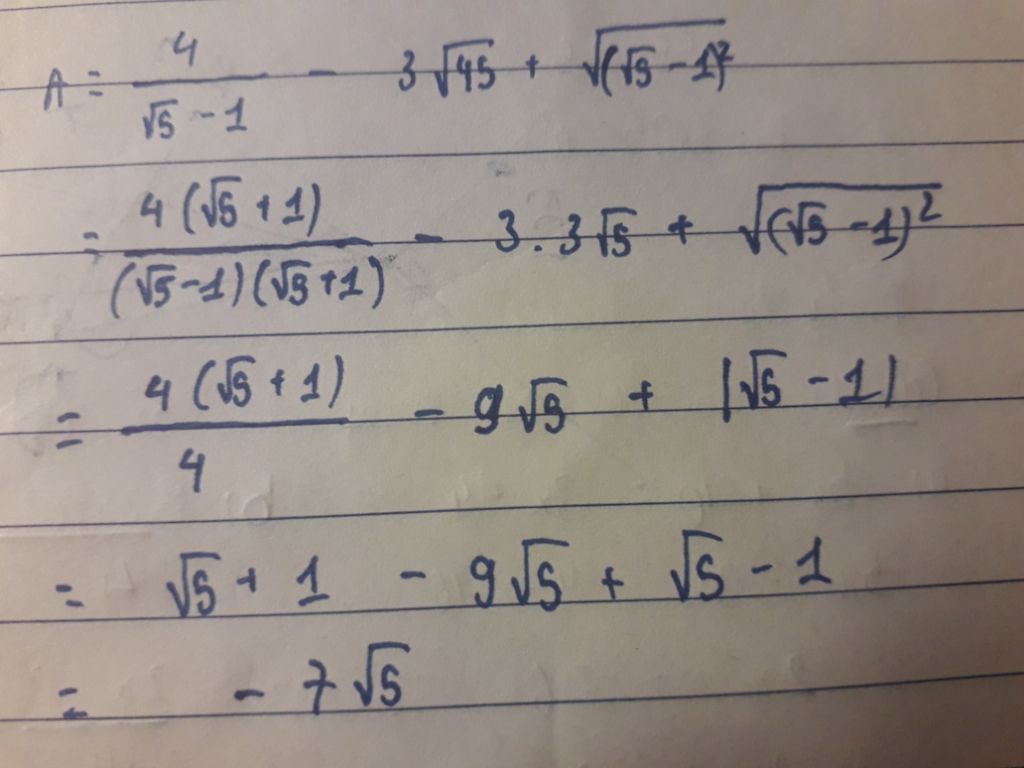 A = \frac{4}{\sqrt{5} - 1} - 3\sqrt{45} + \sqrt{(\sqrt{5} - 1)^2}
= \frac{4(\sqrt{5} + 1)}{(\sqrt{5} - 1)(\sqrt{5} + 1)} - 3 . 3\sqrt{5} + \sqrt{(\sqrt{5} - 1)^2}
= \frac{4(\sqrt{5} + 1)}{4} - 9\sqrt{5} + |\sqrt{5} - 1|
= \sqrt{5} + 1 - 9\sqrt{5} + \sqrt{5} - 1
= - 7\sqrt{5}